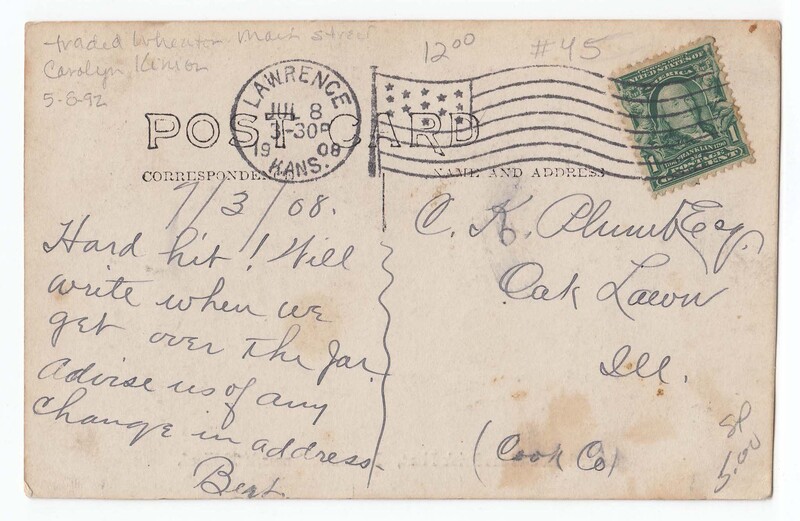 traded Wheaton Main Street
Carolyn Kinion
5-8-92
12⁰⁰
#45
LAWRENCE
JUL 8
3-30P
1908
KANS.
POST CARD
CORRESPONDENCE
NAME AND ADDRESS
UNITED STATES OF AMERICA
1706 FRANKLIN 1790
POSTAGE
1 ONE CENT 1
7/3/08.
Hard hit! Will
write when we
get over the jar.
Advise us of any
change in address.
Bert.
C. K. Plumb Esq.
Oak Lawn
Ill.
(Cook Co)
5.00